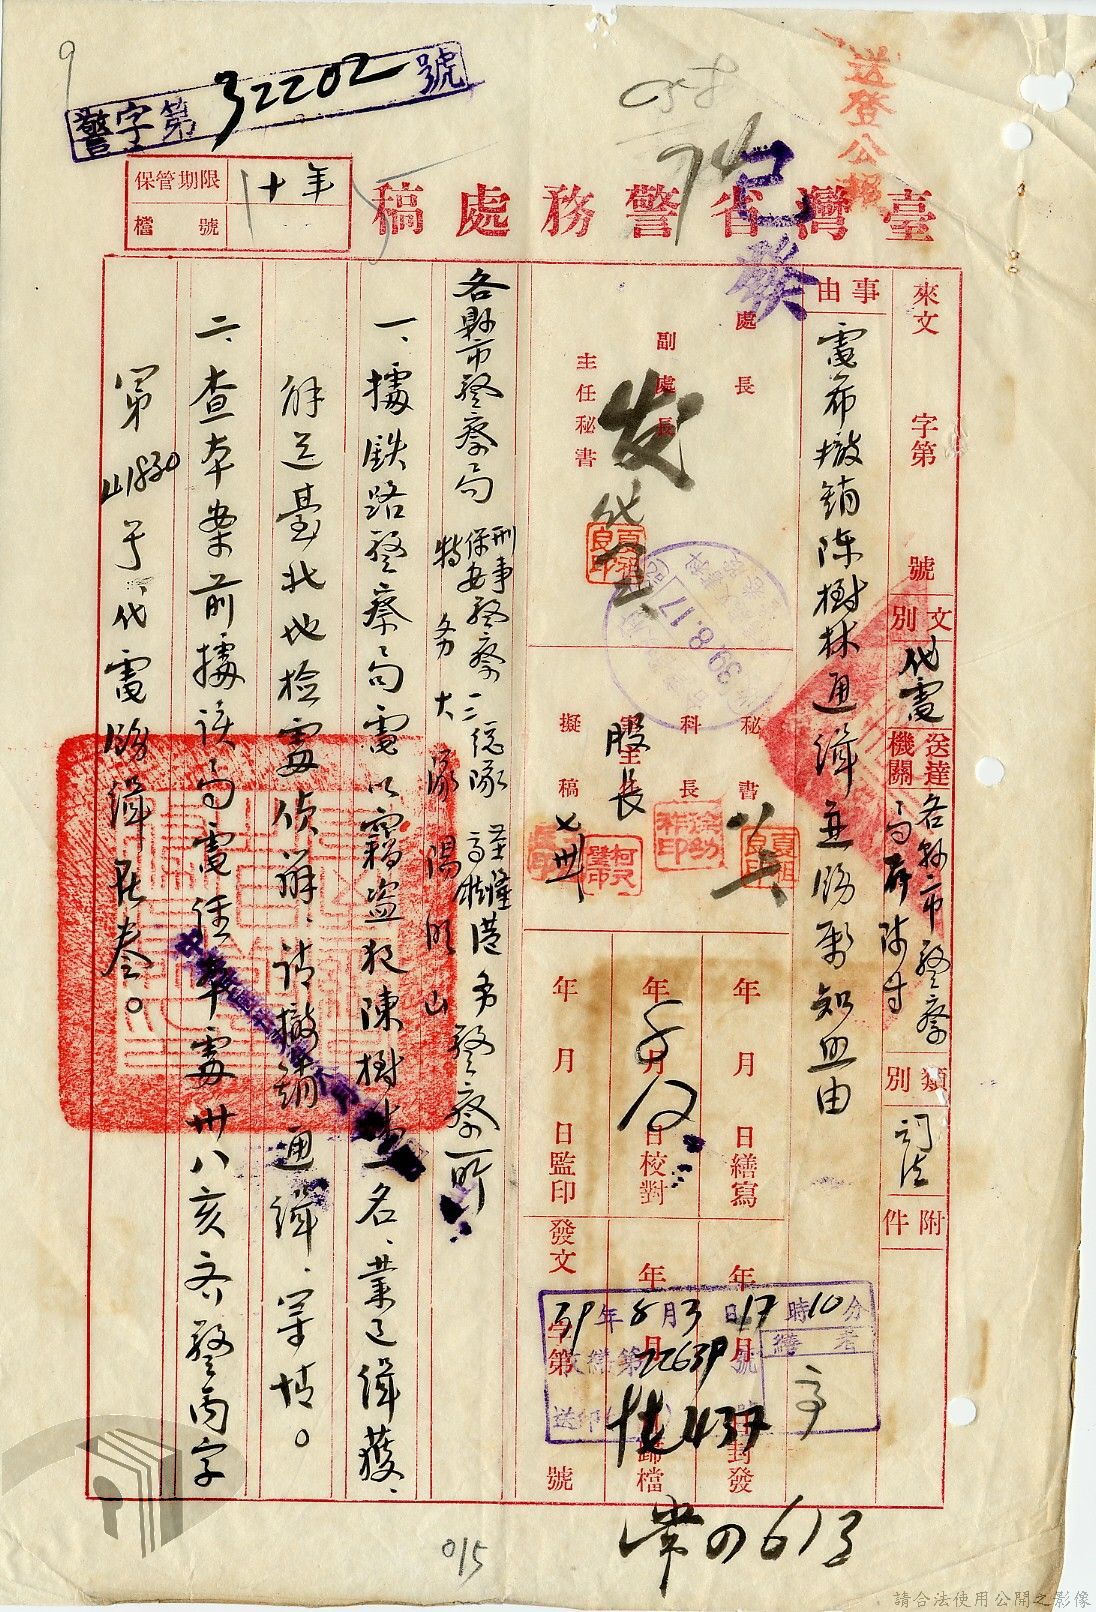 送登公報
警字第32202號
已發
臺灣省警務處稿
保管期限 十年
檔號
來文 字第 號
文別 代電
送達機關 各縣市警察局
類別 司法
附件
事由 電希撤銷陳樹林通緝並飭屬知照由
處長
副處長
主任秘書
發
秘書
科長
股長
擬稿
39.8.17
年月日繕寫
年月日校對
年月日監印
年月日封發
年月日歸檔
發文 字第 號
39年8月3日17時10分
收繕第22639號
繕者
送印
437
各縣市警察局 刑事保安警察一二總隊 基隆高雄港務警察所
特務大隊 陽明山
一、據鐵路警察局電以竊盜犯陳樹林一名、業已緝獲、
解送臺北地檢處偵辦、請撤銷通緝、等情。
二、查本案前據該局電經本處卅八亥齊警丙字
第41830號代電飭緝在卷。
015
613
請合法使用公開之影像